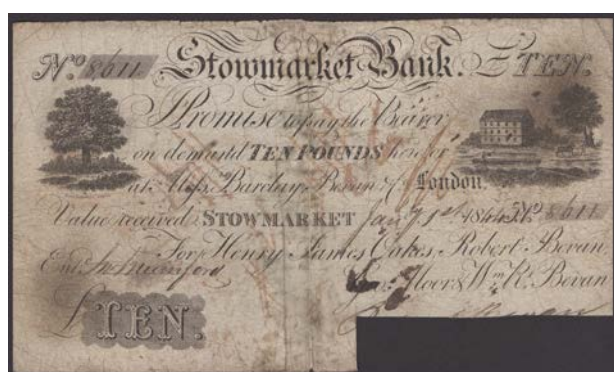 No. 8611 Stowmarket Bank. £ TEN.
I Promise to pay the Bearer
on demand TEN POUNDS here or
at Barclay, Bevan & London.
Value received. STOWMARKET Jany. 1st. 1844 No. 8611
For Henry James Oakes, Robert Bevan
Entd. Mumford Moor & Wm. R. Bevan
£TEN.